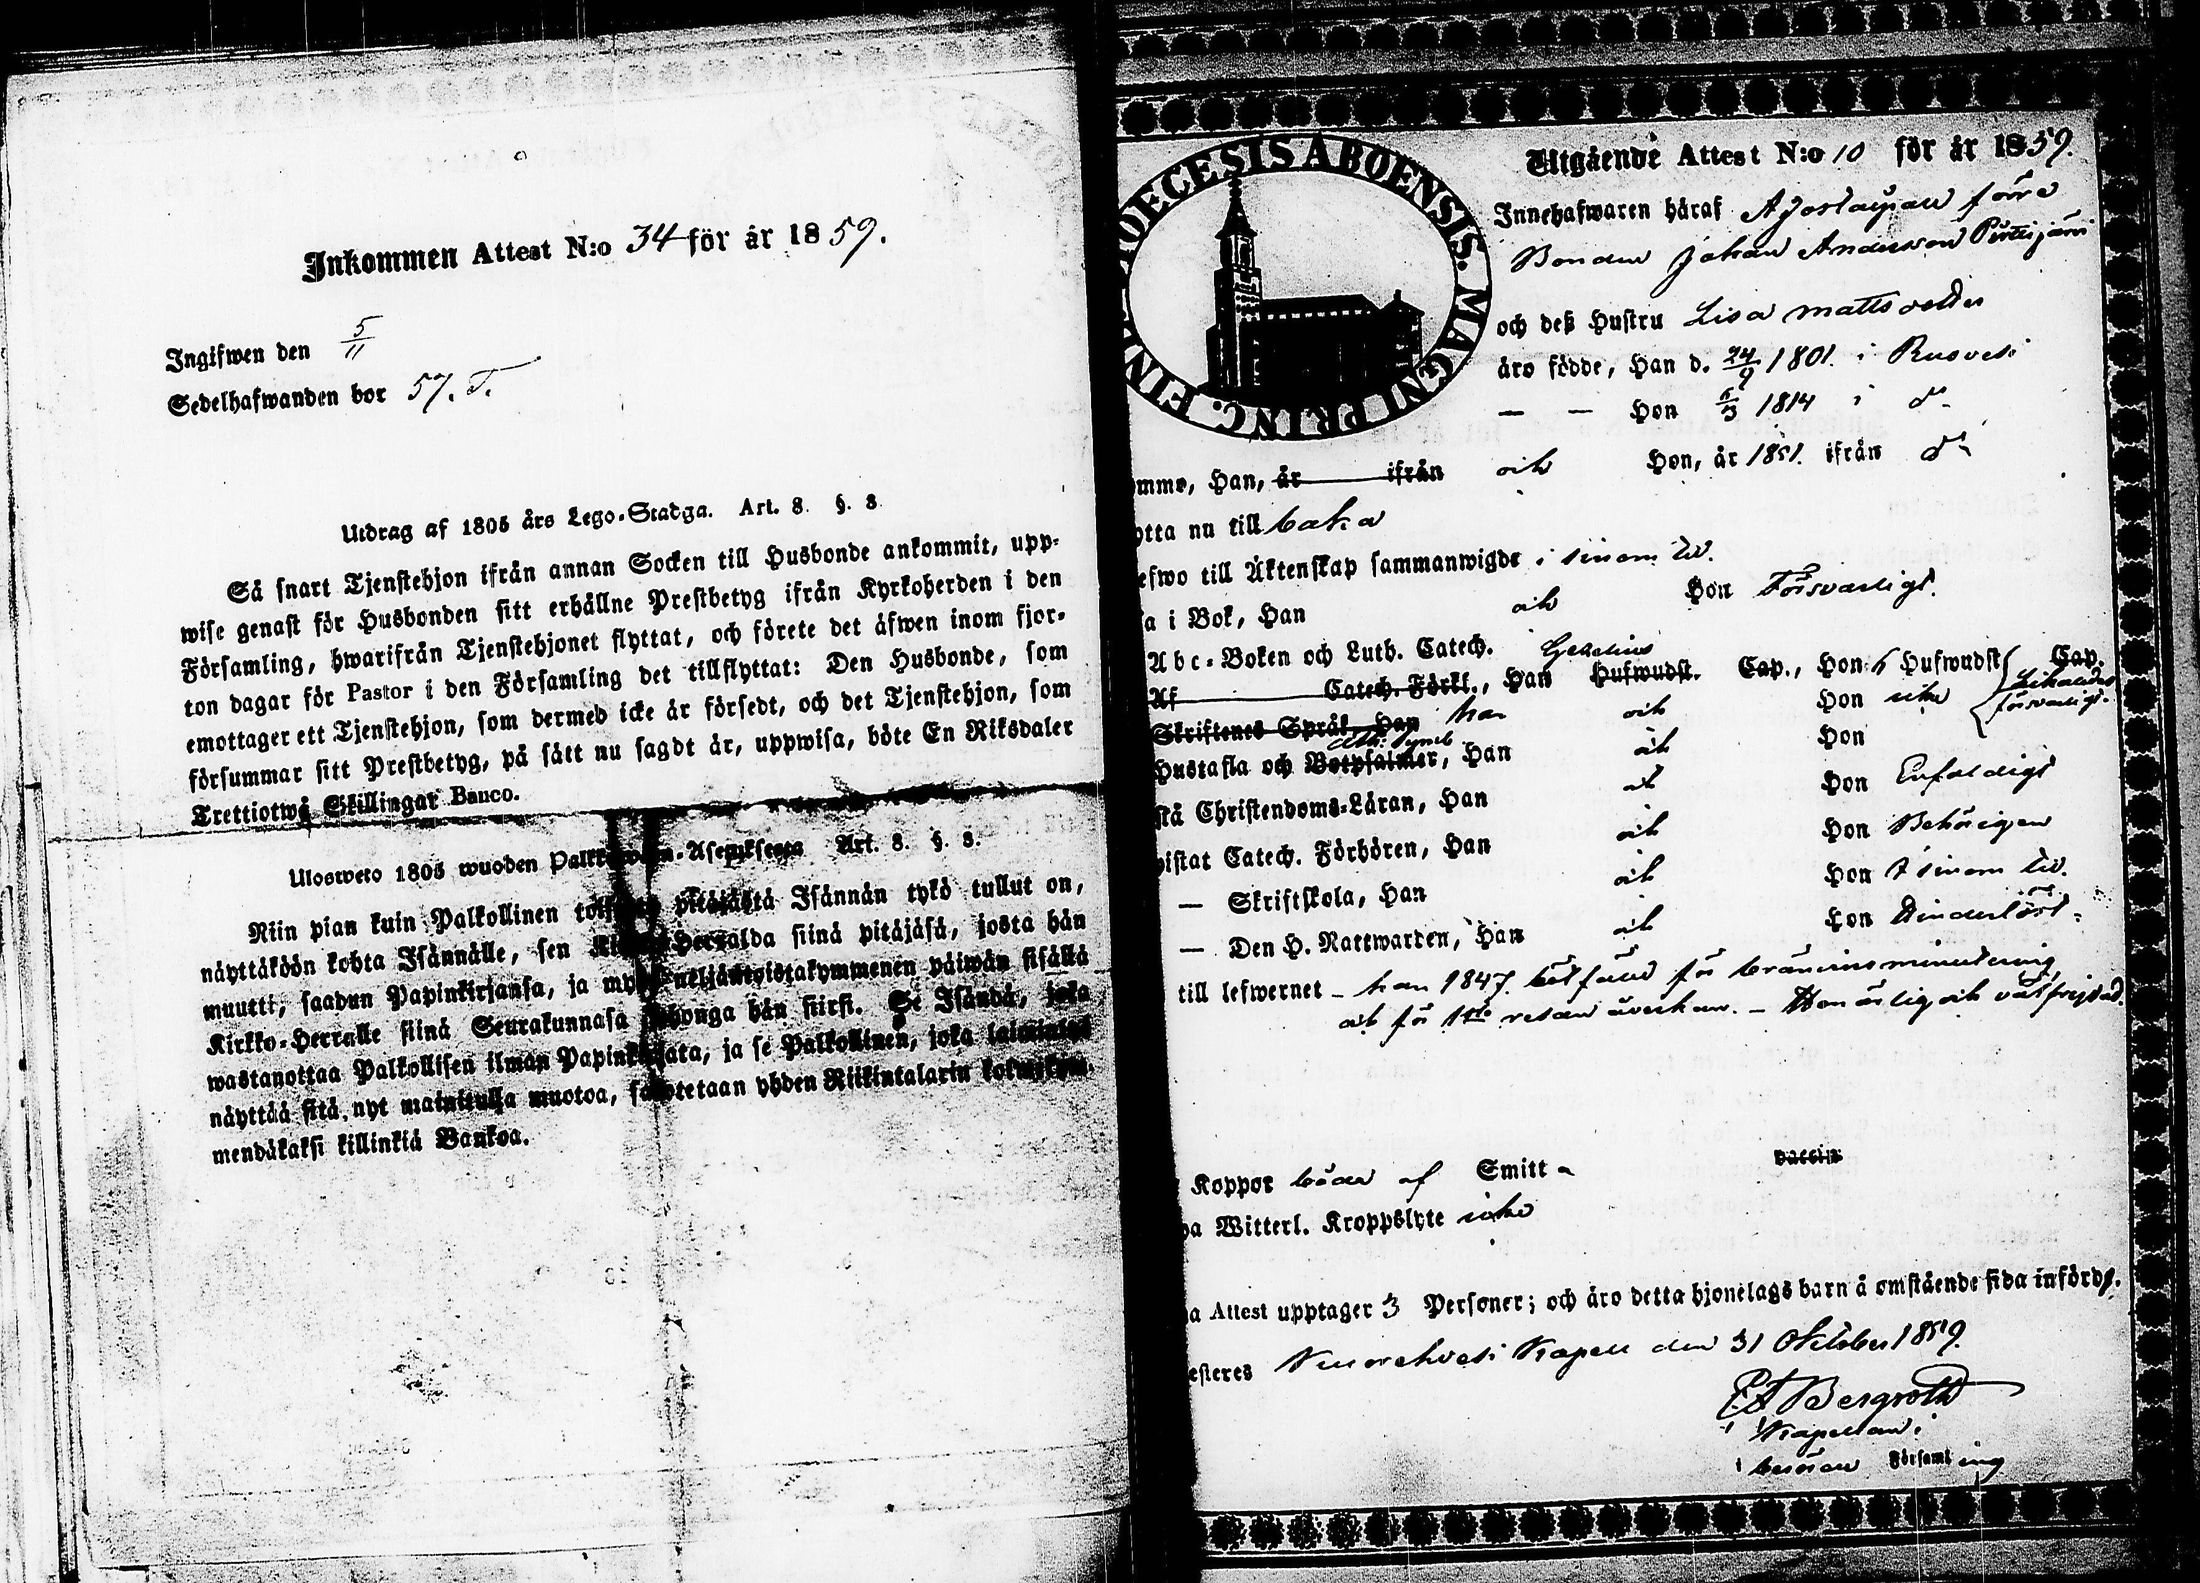 Inkommen Attest N:o 34 för år 1859.
Ingifwen den 5/11
Sedelhafwanden bor 57. T.
Utdrag af 1805 års Lego-Stadga. Art. 8. §. 8.
Så snart Tjenstehjon ifrån annan Socken till Husbonde ankommit, upp-
wise genast för Husbonden sitt erhållne Prestbetyg ifrån Kyrkoherden i den
Församling, hwarifrån Tjenstehjonet flyttat, och förete det äfwen inom fjor-
ton dagar för Pastor i den Församling det tillflyttat: Den Husbonde, som
emottager ett Tjenstehjon, som dermed icke är försedt, och det Tjenstehjon, som
försummar sitt Prestbetyg, på sätt nu sagdt är, uppwisa, böte En Riksdaler
Trettiotwå Skillingar Banco.
Ulosweto 1805 wuoden Art. 8. §. 8.
Niin pian kuin Palkollinen pitäjästä Isännän tykö tullut on,
näyttäköön kohta Isännälle, sen siinä pitäjäsä, josta hän
muutti, saadun Papinkirjansa, ja neljäntoistakymmenen päiwän sisällä
Kirkko-Herralle siinä Seurakunnasa hän siirsi. Se Isändä, joka
wastanottaa Palkollisen ilman Papinkirjata, ja se Palkollinen, joka
näyttää sitä nyt mainitulla muotoa, yhden Riikintalarin kolmekym-
mendäkaksi killinkiä Bankoa.
DIOECESIS ABOENSIS. MAGNI PRINC. FINL.
Utgående Attest N:o 10 för år 1859.
Innehafwaren häraf förre
Bonden Johan Andersson
och deß Hustru Lisa Mattsdotter
äro födde, Han d. 24/9 1801. i Rusvesi
— — Hon 5/3 1814 i do
omme, Han, år ifrån och Hon, år 1851. ifrån do
ytta nu till
efwo till Äktenskap sammanwigde i sinom tid.
a i Bok, Han och Hon Försvarligt.
Abc-Boken och Luth. Catech. Gezelius
Af Catech. Förkl., Han Hufwudst. Cap., Hon Hufwudst Cap.
Skriftenes Språk, Han har och Hon icke försvarligt.
Hustafla och Botpsalmer, Han och Hon
stå Christendoms-Läran, Han och Hon Enfaldigt
wistat Catech. Förhören, Han och Hon Behörigen
— Skriftskola, Han och Hon i sinom tid.
— Den H. Nattwarden, Han och Hon Hinderlöst.
till lefwernet – han 1847. bötfäld för bränvinsminutering
och för 1sta resan åverkan. – Hon ärlig och välfrejdad.
Koppor både af Smitta vaccin
a Witterl. Kroppslyte icke
a Attest upptager 3 Personer; och äro detta hjonelags barn å omstående sida införde.
esteres Kapell den 31 October 1859.
Bergroth
Kapellan i
Församling